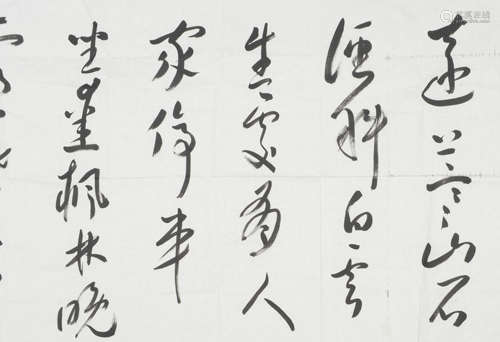 遠上寒山石
徑斜白雲
生處有人
家停車
坐愛楓林晚